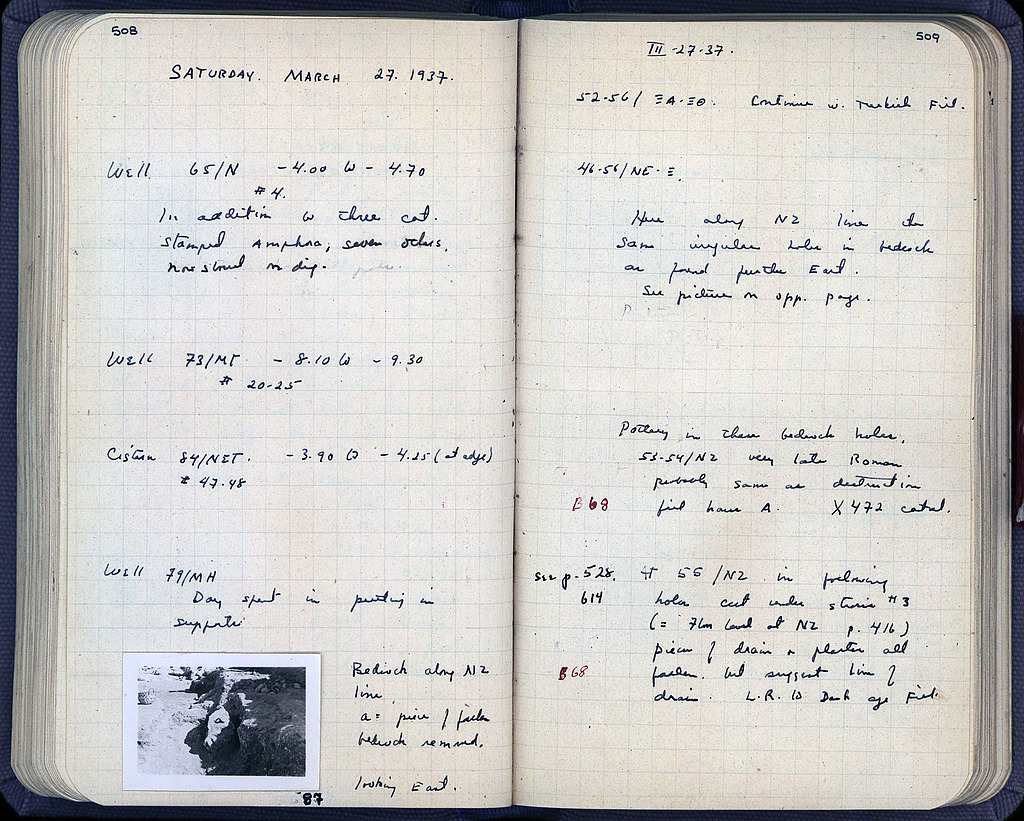 508
SATURDAY. MARCH 27. 1937.
Well 65/N -4.00 to -4.70
# 4.
In addition to three cat.
stamped Amphora, seven others,
now stored in dig.
Well 73/MT - 8.10 to - 9.30
# 20-25
Cistern 84/NET. -3.90 to -4.25 (at edge)
# 47.48
Well 79/MH
Day spent in putting in
supports
Bedrock along NZ
line
a = piece of fallen
bedrock removed.
looking East.
87
509
III-27-37.
52-56/ ΞA-ΞΘ. Continue w. Turkish Fill.
46-56/NE-Ξ.
Here along NZ line the
same irregular holes in bedrock
as found further East.
See picture on opp. page.
Pottery in these bedrock holes,
53-54/NZ very late Roman
probably same as destruction
B 68 fill house A. X 472 catal.
See p. 528, # 55/NZ in following
614 holes cut under strosis #3
(= 7th level at NZ p. 416)
pieces of drain & plaster all
B 68 fallen, but suggest line of
drain. L.R. to Dark age Fill.